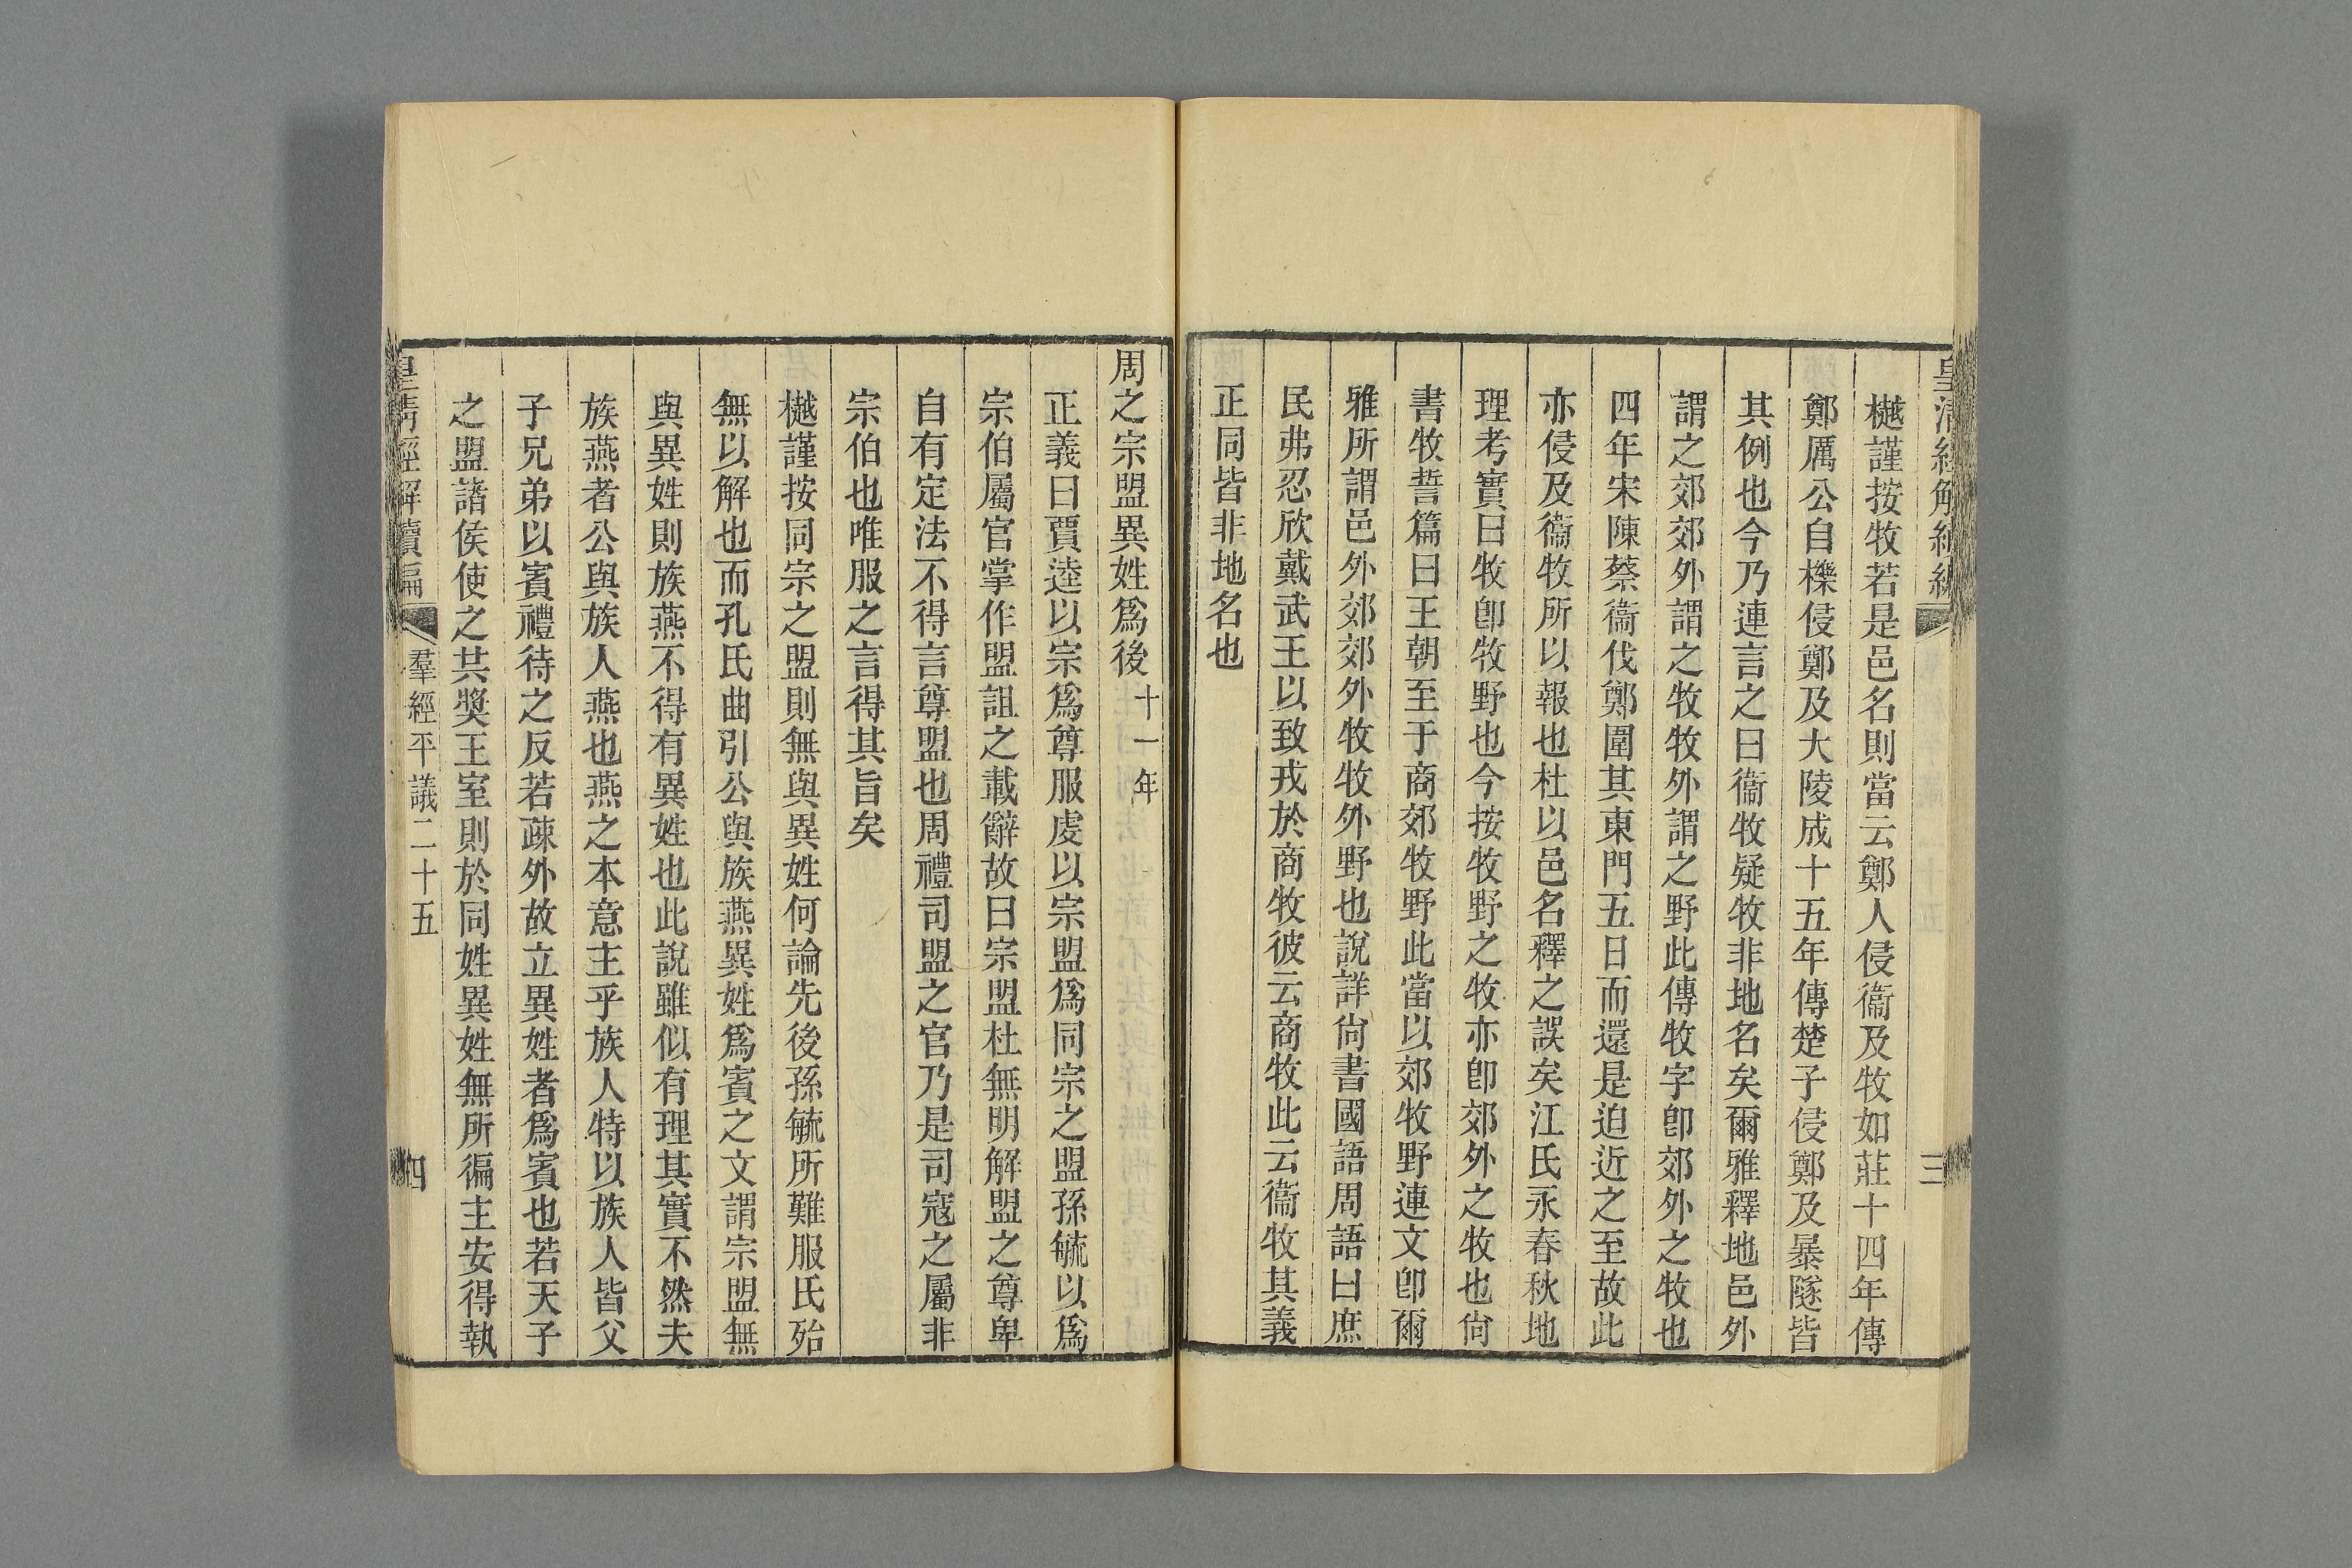 皇清經解續編
三
樾謹按牧若是邑名則當云鄭人侵衞及牧如莊十四年傳
鄭厲公自櫟侵鄭及大陵成十五年傳楚子侵鄭及暴隧皆
其例也今乃連言之曰衞牧疑牧非地名矣爾雅釋地邑外
謂之郊郊外謂之牧牧外謂之野此傳牧字卽郊外之牧也
四年宋陳蔡衞伐鄭圍其東門五日而還是迫近之至故此
亦侵及衞牧所以報也杜以邑名釋之誤矣江氏永春秋地
理考實曰牧卽牧野也今按牧野之牧亦卽郊外之牧也尙
書牧誓篇曰王朝至于商郊牧野此當以郊牧野連文卽爾
雅所謂邑外郊郊外牧牧外野也說詳尙書國語周語曰庶
民弗忍欣戴武王以致戎於商牧彼云商牧此云衞牧其義
正同皆非地名也
周之宗盟異姓爲後十一年
正義曰賈逵以宗爲尊服虔以宗盟爲同宗之盟孫毓以爲
宗伯屬官掌作盟詛之載辭故曰宗盟杜無明解盟之尊卑
自有定法不得言尊盟也周禮司盟之官乃是司寇之屬非
宗伯也唯服之言得其旨矣
樾謹按同宗之盟則無與異姓何論先後孫毓所難服氏殆
無以解也而孔氏曲引公與族燕異姓爲賓之文謂宗盟無
與異姓則族燕不得有異姓也此說雖似有理其實不然夫
族燕者公與族人燕也燕之本意主乎族人特以族人皆父
子兄弟以賓禮待之反若疎外故立異姓者爲賓也若天子
之盟諸侯使之共獎王室則於同姓異姓無所徧主安得執
皇清經解續編
羣經平議二十五
四